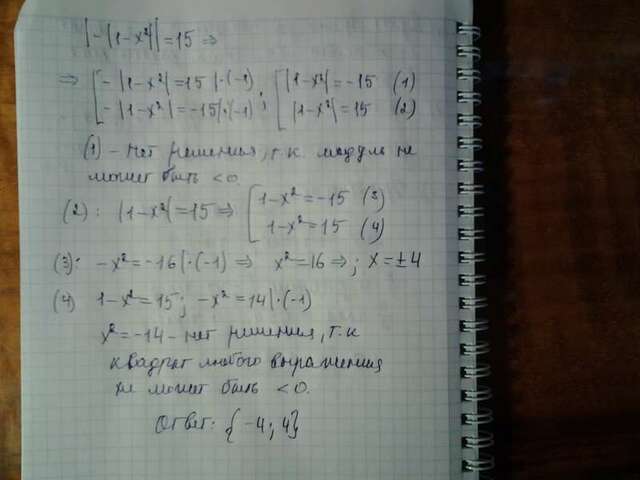 |-|1-x²|| = 15 ⇒
⇒ [ -|1-x²| = 15 |·(-1) ; [ |1-x²| = -15 (1)
-|1-x²| = -15 |·(-1) |1-x²| = 15 (2)
(1) - Нет решения, т.к. модуль не
может быть < 0
(2): |1-x²| = 15 ⇒ [ 1-x² = -15 (3)
1-x² = 15 (4)
(3): -x² = -16 |·(-1) ⇒ x² = 16 ⇒ ; x = ±4
(4) 1-x² = 15; -x² = 14 |·(-1)
x² = -14 - нет решения, т.к
квадрат любого выражения
не может быть < 0.
Ответ: {-4; 4}